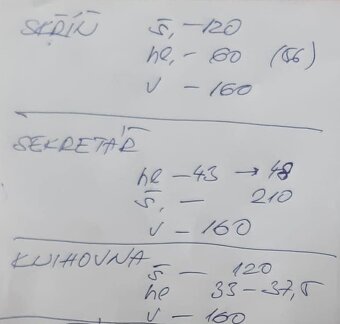 SKŘÍŇ š, - 120
hl, - 60 (56)
v - 160
SEKRETÁŘ
hl - 43 → 48
š, - 210
v - 160
KNIHOVNA
š - 120
hl 33 - 37,5
v - 160